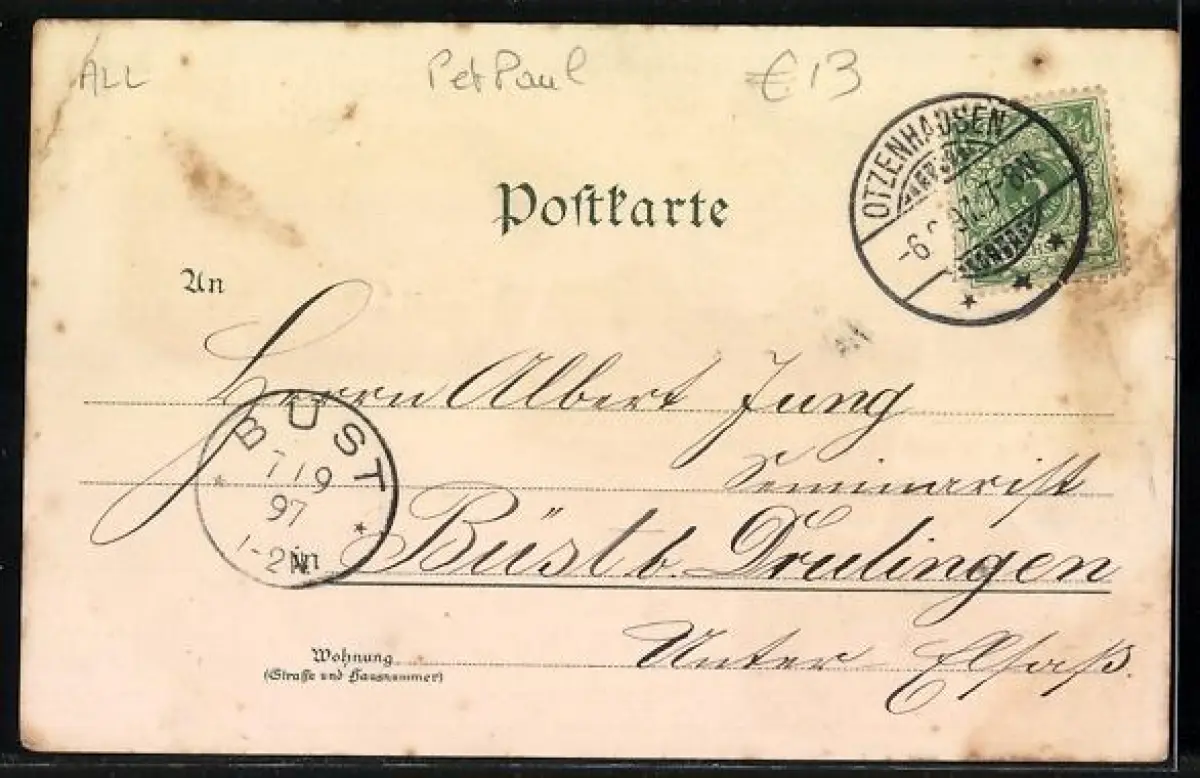 ALL Pet Paul € 13
OTZENHAUSEN
-6. 97. 7-8N.
Postkarte
An
Herrn Albert Jung
Seminarist
Büst b. Drulingen
Unter-Elsaß.
BÜST
7 / 9
97
1-2 N
Wohnung
(Straße und Hausnummer)